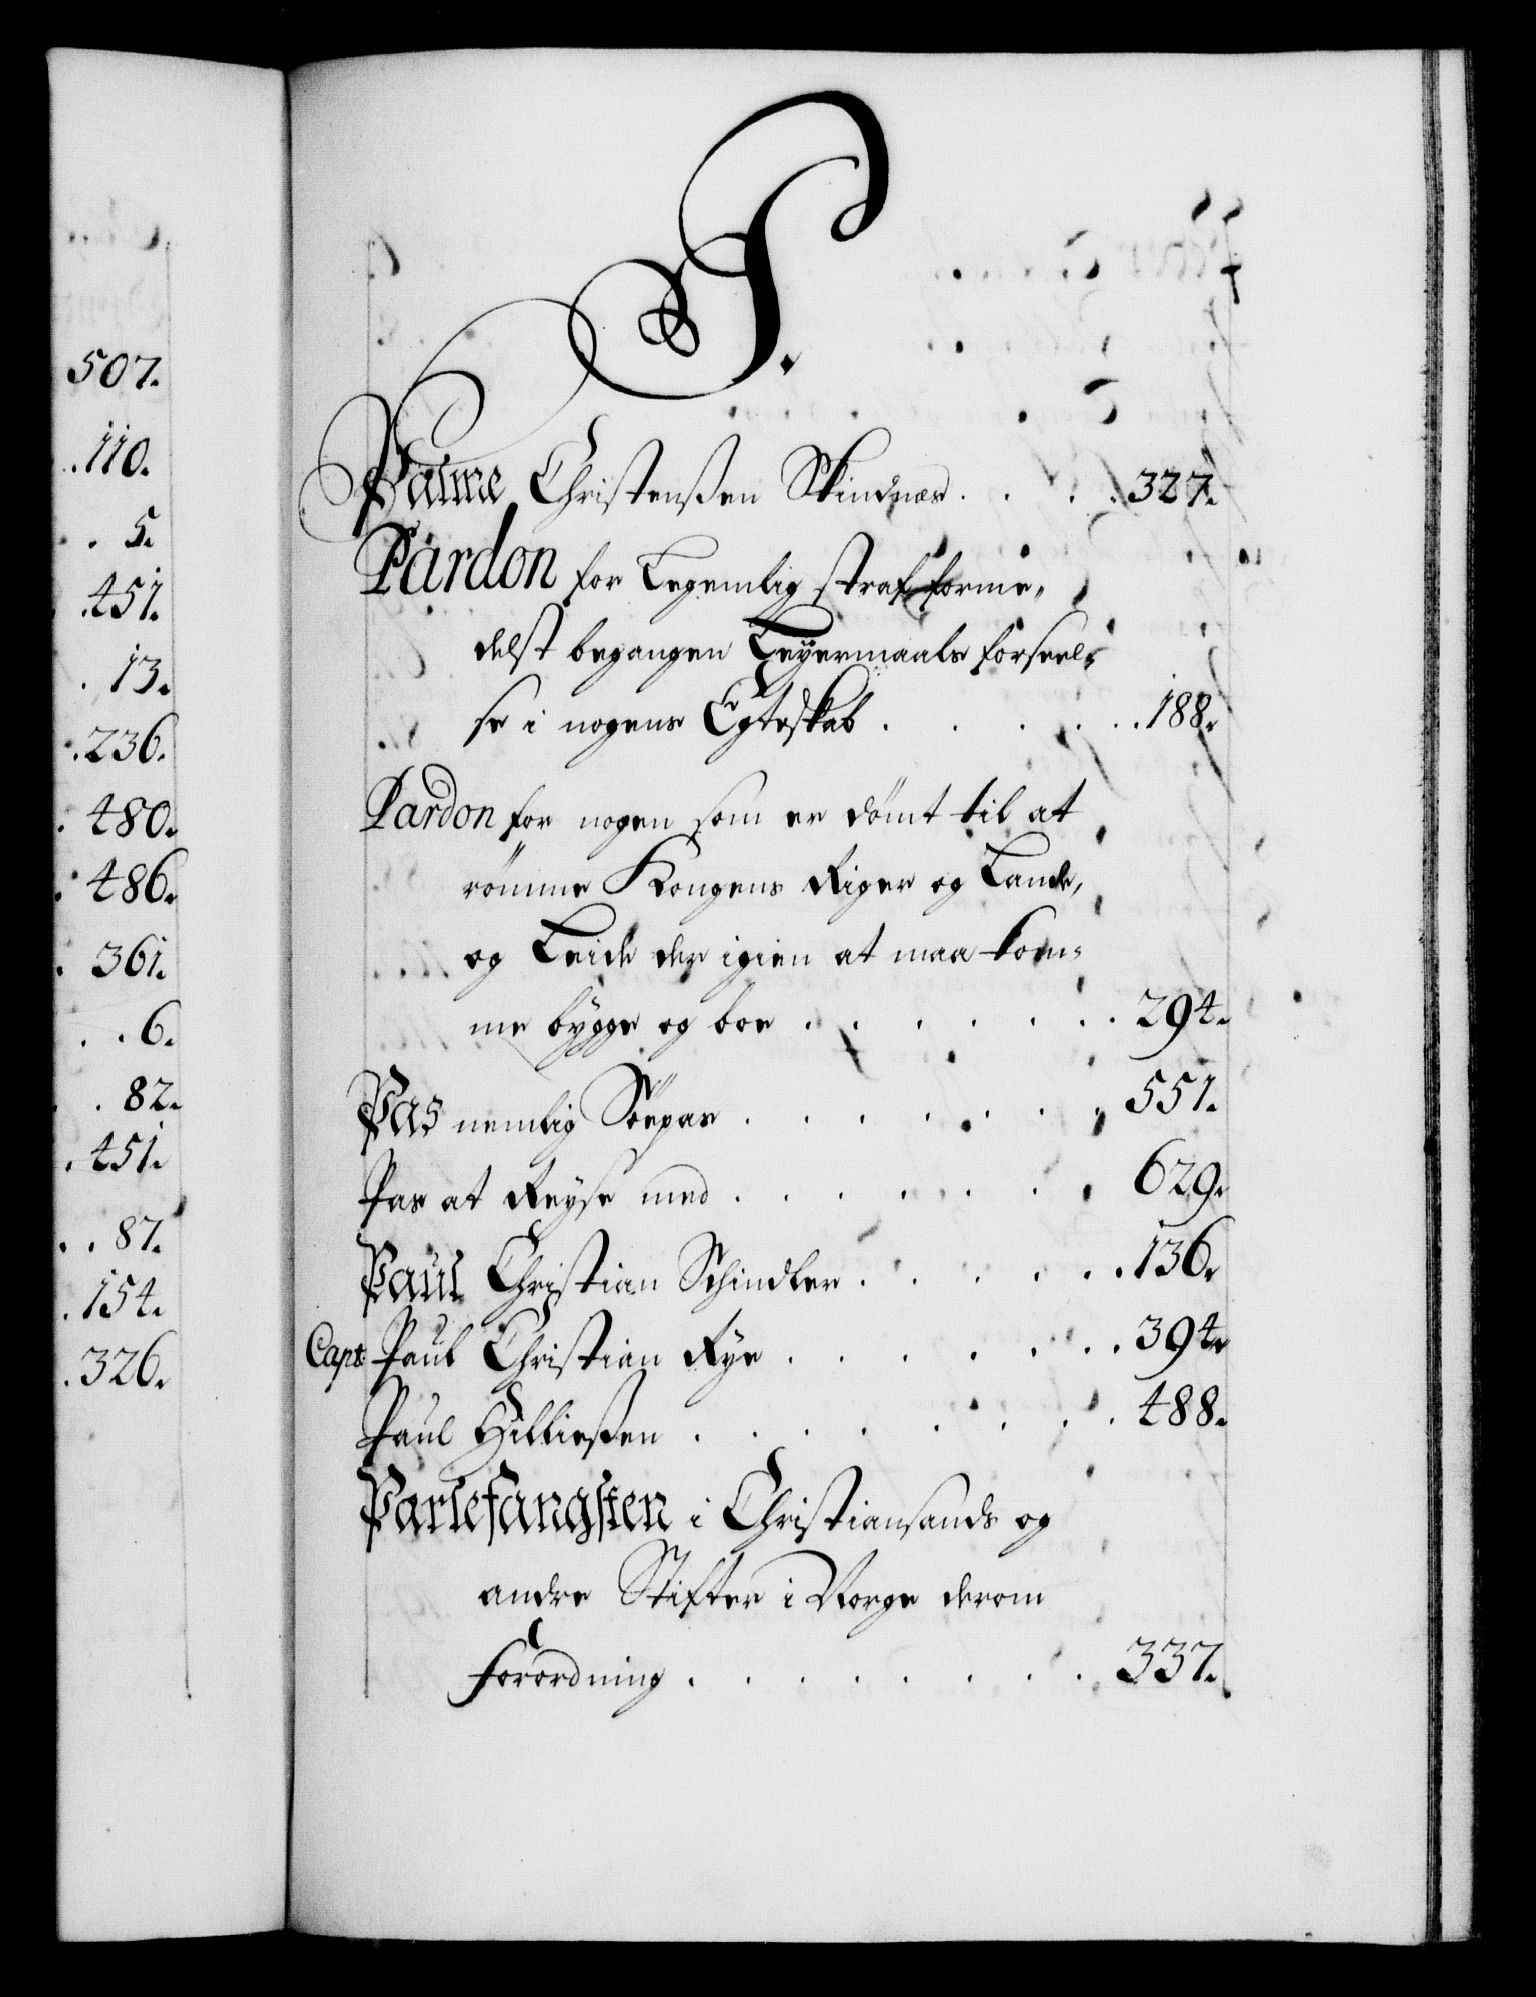 507.
.110.
. . 5.
.451.
. 13.
.236.
. 480.
. 486.
. 361.
. . 6.
. . 82.
. 451.
. . 87.
. 154.
. 326.
P.
Palme Christenßen Skindnæs . . . . 327.
Pardon for Legemlig straf forme„
delst begangen Leyermaals forseel„
se i nogens Egteskab . . . . . 188.
Pardon for nogen som er dömt til at
römme Kongens Riger og Lande,
og Leide der igien at maa kom„
me bygge og boe . . . . . . 294.
Pas nemlig Söepas . . . . . . 551.
Pas at Reyse med . . . . . . 629.
Paul Christian Schindler . . . . . 136.
Capt: Paul Christian Rye . . . . . . 394.
Paul Hilließen . . . . . . . . 488.
Parlefangsten i Christiansands og
andre Stifter i Norge derom
Forordning . . . . . . . . 337.